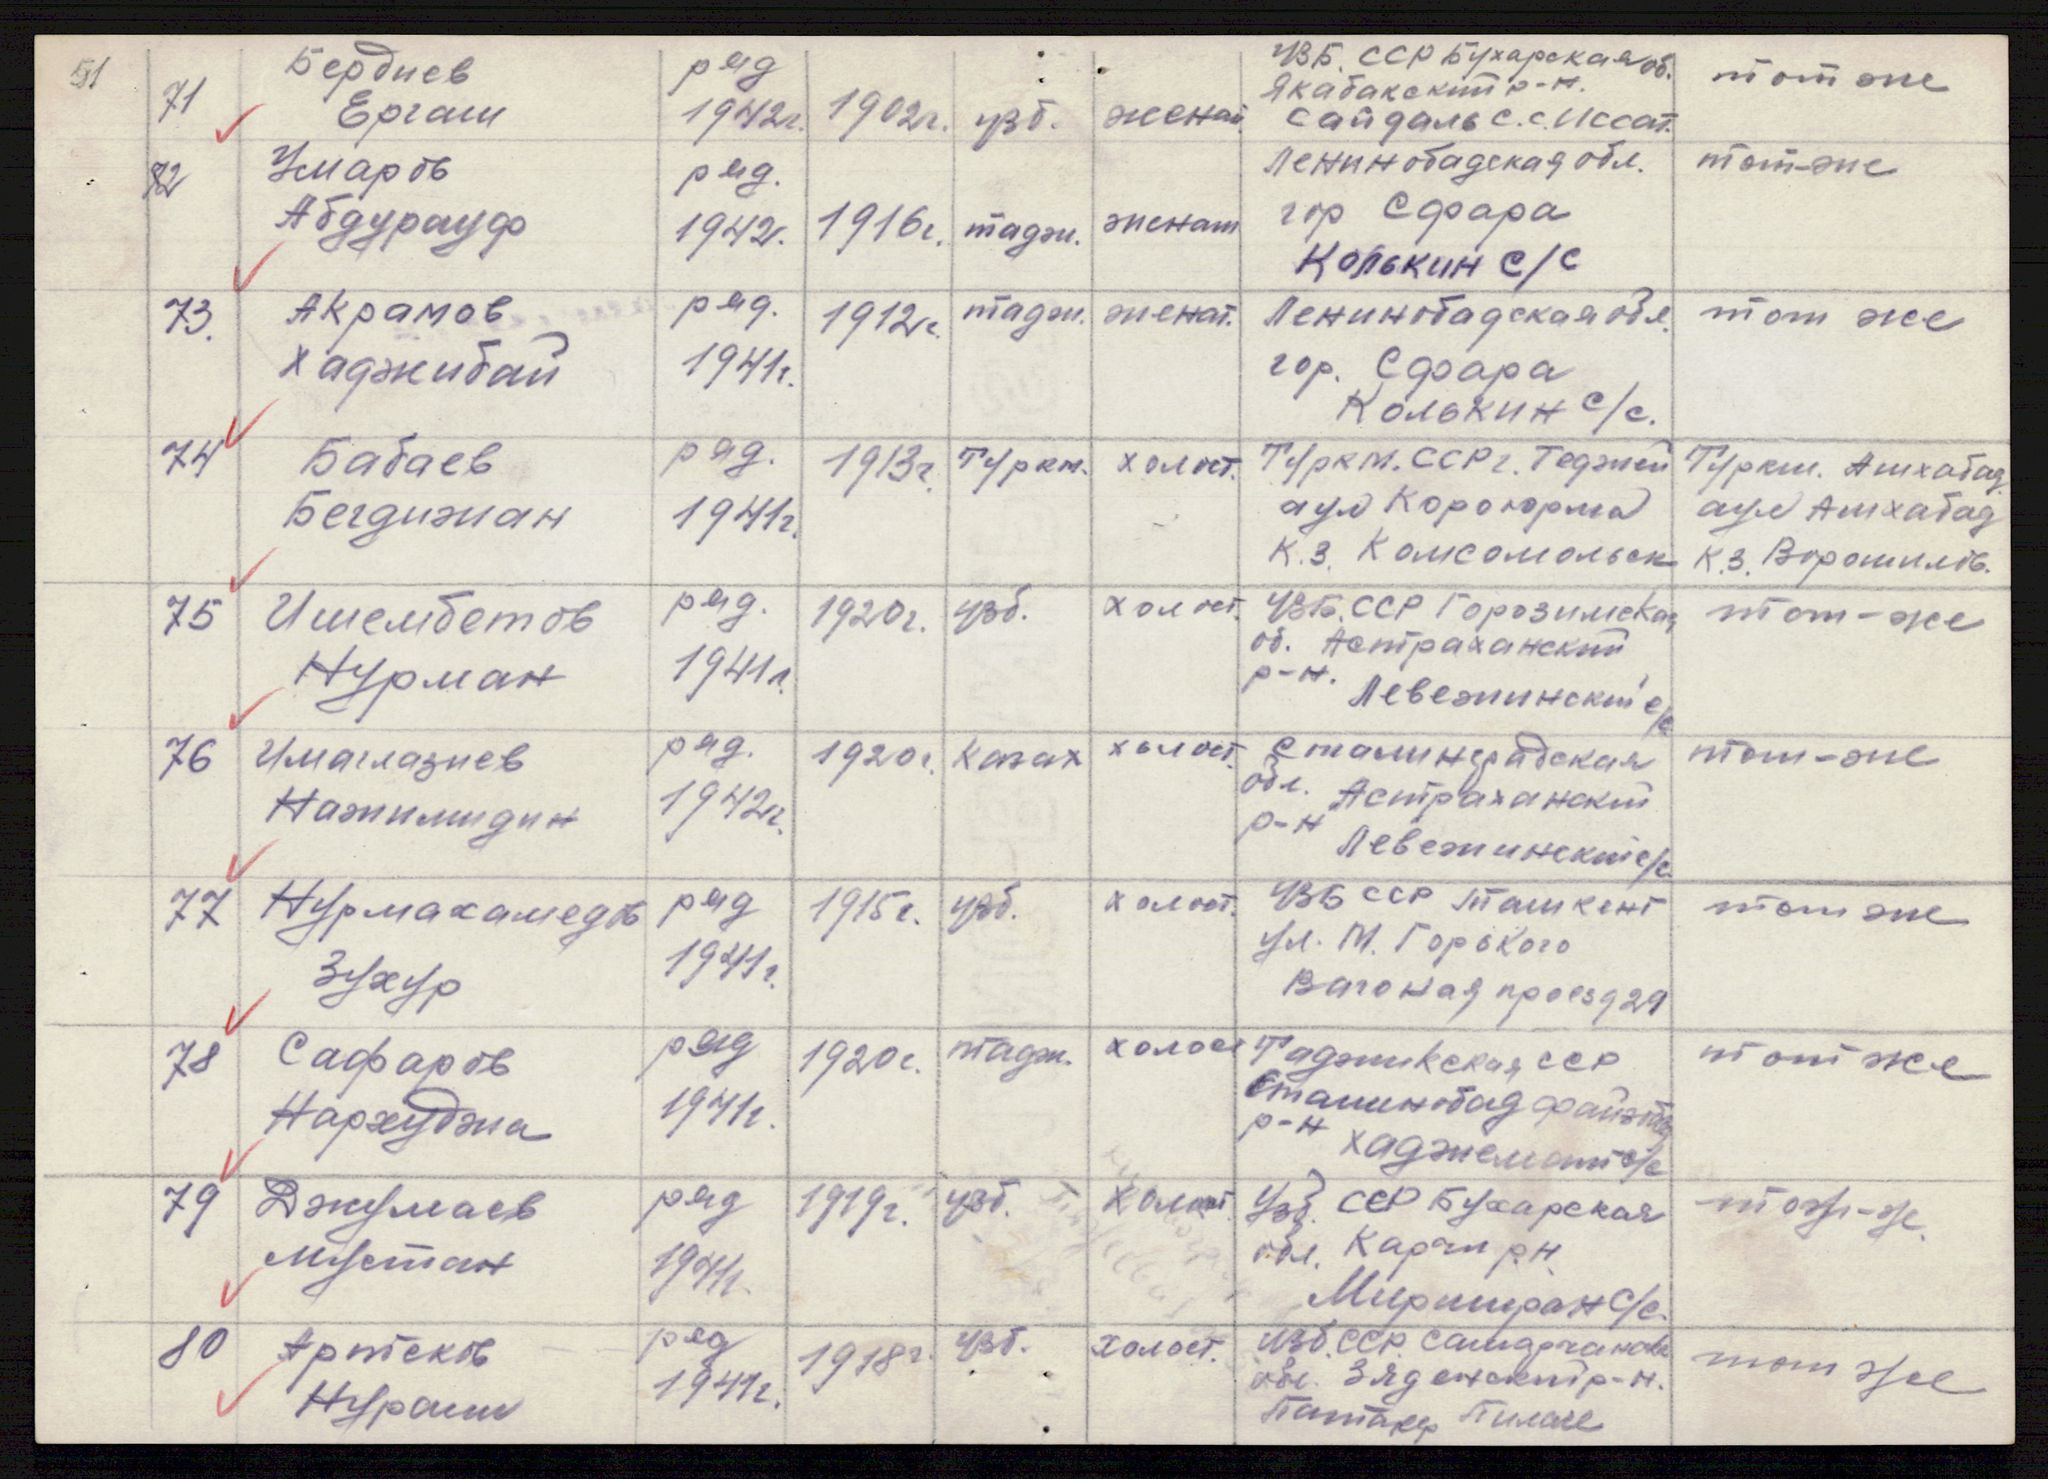 51
71 Бердиев ряд 1902г. узб. женат УзБ. ССР Бухарская об. тот же
Ергаш 1942г. Якабакский р-н.
Сайдаль С.С. Иссат.
72 Умаров ряд. 1916г. тадж. женат Ленинобадская обл. тот-же
Абдурауф 1942г. гор Сфара
Колькин С/С
73. Акрамов ряд. 1912г. тадж. женат. Ленинобадская обл. тот же
Хаджибай 1941г. гор. Сфара
Колькин С/с.
74 Бабаев ряд. 1913г. Туркм. холост. Туркм. ССР г. Теджен Туркм. Ашхабад
Бегдижан 1941г. аул Короюрма аул Ашхабад
К.З. Комсомольск К.З. Ворошилов.
75 Ишембетов ряд. 1920г. узб. холост. УзБ. ССР Горозимская тот-же
Нурман 1941г. об. Астраханский
р-н. Левежинский с/с
76 Имаглазиев ряд. 1920г. Казах холост. Сталинградская тот-же
Нажимидин 1942г. обл. Астраханский
р-н Левежинский с/с
77 Нурмахамедов ряд 1915г. узб. холост. УзБ ССР Ташкент тот же
Зухур 1941г. ул. М. Горького
Вагоная проезд 29
78 Сафаров ряд 1920г. тадж. холост Таджикская ССР тот же
Нархуджа 1941г. Сталинобад файзобад
р-н Хаджемат с/с
79 Джумаев ряд 1919г. узб. холост Узб. ССР Бухарская тож-же.
Мустан 1941г. обл. Карши р.н.
Миришран С/с.
80 Артеков ряд 1918г. узб. холост. Узб. ССР тот же
Нураш 1941г. обл. Зяденский р-н.
Пилале